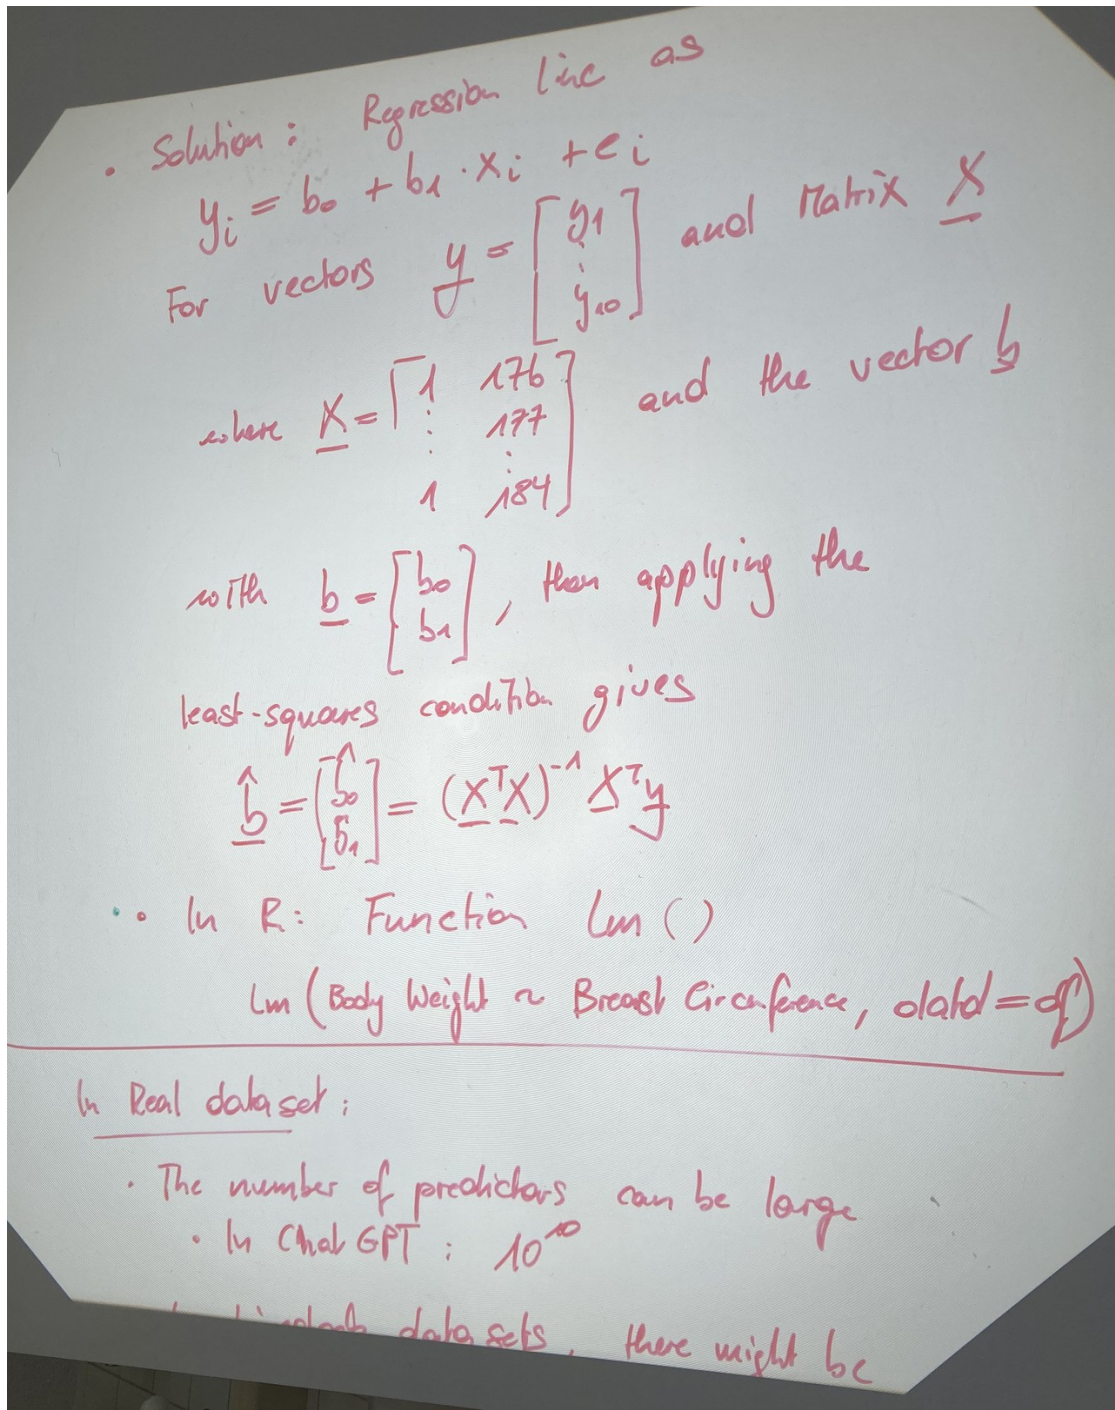 • Solution: Regression line as
yᵢ = b₀ + b₁ · xᵢ + eᵢ
For vectors y = [y₁ ⋮ y₁₀] and Matrix X
where X = [1 176
⋮ 177
⋮ ⋮
1 184] and the vector b
with b = [b₀ b₁], then applying the
least-squares condition gives
b̂ = [b̂₀ b̂₁] = (XᵀX)⁻¹ Xᵀy
• In R: Function lm()
lm(Body Weight ~ Breast Circumference, data=df)
In Real dataset:
• The number of predictors can be large
• In ChatGPT: 10¹⁰
data sets, there might be